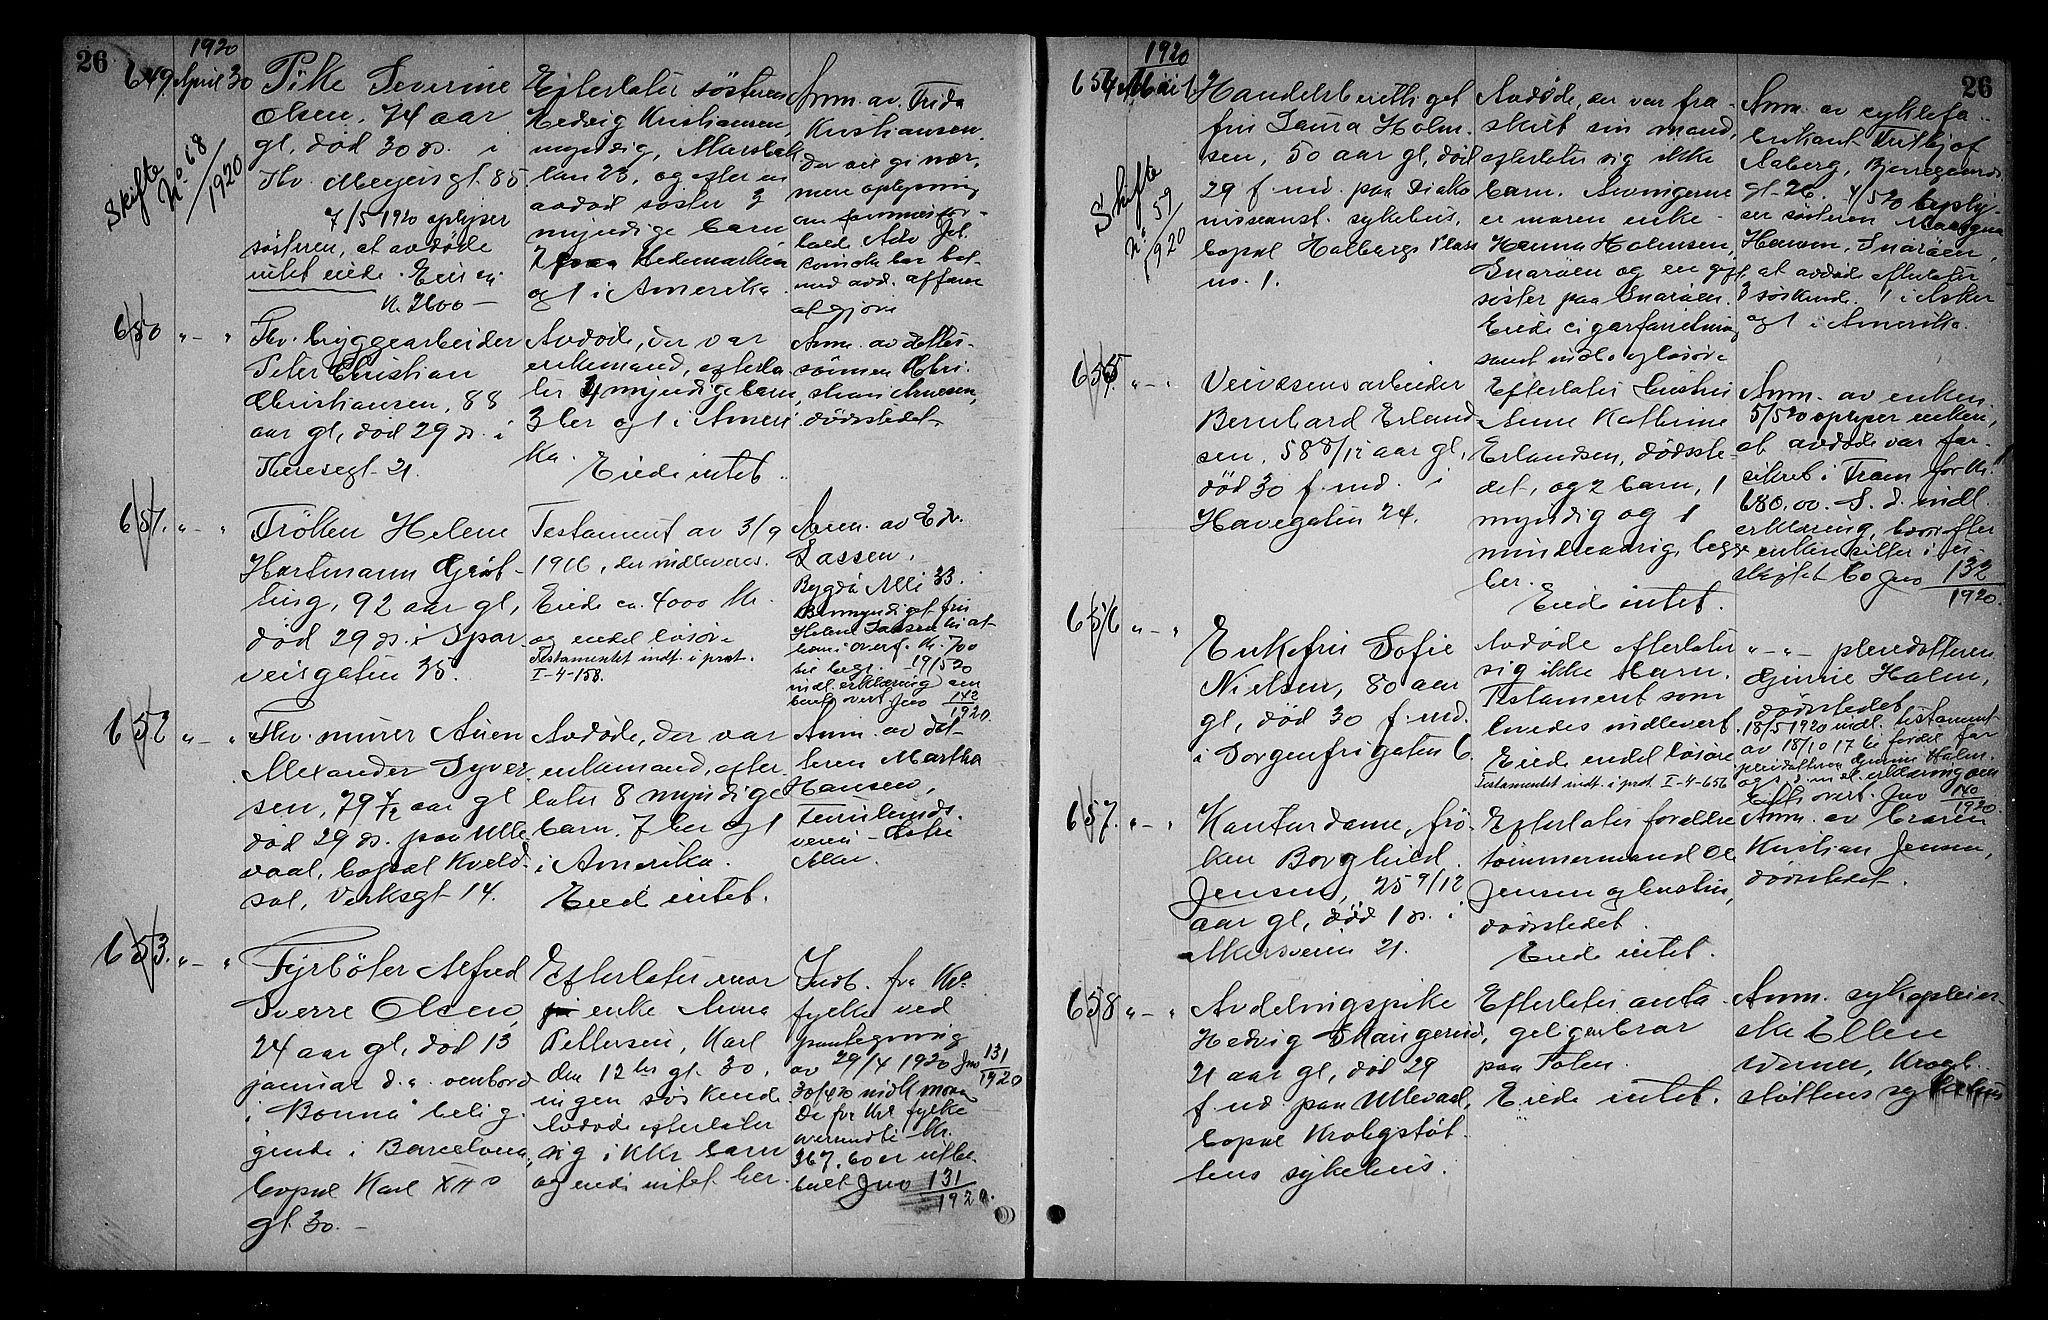 26
1920
649 April 30
Skifte
No 68
/1920
Pike Severine
Olsen, 74 aar
gl, död 30 ds. i
Thv. Meyersgt. 85
7/5 1920 oplyser
søsteren, at avdøde
intet eiede. Eier ca
Kr. 2600 –
Efterlater søsteren
Hedvig Kristiansen,
myndig,
23, og efter en
avdød søster 3
myndige barn,
2 paa Hedemarken
og 1 i Amerika.
Anm. av. Frida
Kristiansen,
der vil gi nær-
mere oplysning
om
bold Adv
har bot
med avd. affære
at gjøre
650 " – "
Fhv. bryggearbeider
Peter Christian
Christiansen, 88
aar gl, död 29 ds. i
Theresegt 21.
Avdøde, der var
enkemand, efterla-
ter 4 myndige barn,
3 her og 1 i Ameri
ka.
Eiede intet.
Anm. av datter-
sønnen Chri-
stian Arnesen,
dødsstedet
651. " – "
Fröken Helene
Hartmann Gröt-
ting, 92 aar gl,
död 29 ds. i Spor-
veisgaten 35.
Testament av 3/9
1916, der indleveres.
Eiede ca. 4000 Kr.
og endel løsøre
Testamentet indt. i prot.
I-4-158.
Anm. av Edv.
Lassen,
Bygdö Alle 33.
Bemyndiget fru
Helene Lassen til at
hæve i overf. Kr. 700
til begr. 19/5 20
indl. erklæring om
boets overt. Jno 142
1920.
652 " – "
Fhv. murer Anen
Alexander Syver-
sen, 79 4/12 aar gl
död 29 ds. paa Ulle
vaal, bopæl Kveld-
sol, Verksgt 14.
Avdøde, der var
enkemand, efter-
later 8 myndige
barn. 7 her og 1
i Amerika.
Eied intet.
Anm. av dat-
teren Martha
Hansen,
veien – Østre
Aker.
653. " – "
Fyrböter Alfred
Sverre Olsen,
24 aar gl, död 13
januar d.a. ombord
i "Bonna" belig-
gende i Barcelona,
bopæl Karl XIIs
gt. 30. –
Efterlater mor
enke Anna
Pettersen, Karl
den 12tes gt. 30,
ingen søskende
Avdøde efterlater
sig ikke barn
og eiede intet her.
Indb. fra Kr.a
fylke ved
paategning
av 29/4 1920 Jno 131
1920
30/4 20 indk. mon
de fra Kra fylke
oversendte Kr.
367.60 er utbe-
talt Jno 131
1920.
26
1920
654 Mai 1
Skifte
No 59
1920
Handelsberettiget
fru Laura Holm-
sen, 50 aar gl, död
29 f. md. paa Diako
nisseanst. sykehus,
bopæl Holbergs Plass
no. 1.
Avdøde, der var fra-
skilt sin mand,
efterlater sig ikke
barn. Arvingerne
er moren enke
Hanna Holmsen,
Snarøen og en gift
søster paa Snarøen.
Eiede cigarforretning
samt indbo og løsøre
Anm. av cyklefa-
brikant Fritjof
Aaberg, Bjerregaards-
gt 26. 4/5 20 oply-
ser søsteren Magna
Hansen, Snarøen,
at avdøde efterlater
3 søskend. 1 i Asker
og 1 i Amerika.
655. " – "
Veivæsensarbeider
Bernhard Erland-
sen, 58 8/12 aar gl,
död 30 f. md. i
Havegaten 24.
Efterlater hustru
Anne Kathrine
Erlandsen, dødsste-
det, og 2 barn, 1
myndig og 1
mindreaarig, begge
her.
Eiede intet.
Anm. av enken.
5/5 20 oplyser enken,
at avdøde var for-
sikret i Fram for Kr.
680.00. S. d. indl.
erklæring, hvorefter
enken sitter i u-
skiftet bo Jno 132
1920.
656 " – "
Enkefru Sofie
Nielsen, 80 aar
gl, död 30 f. md.
i Sorgenfrigaten 6
Avdøde efterlater
sig ikke barn.
Testament som
loves indlevert.
Eiede endel løsøre
Testamentet indt. i prot. I-4-656
" – " pleiedatteren
Gjinie Holm,
dødsstedet
18/5 1920 indl. testament
av 18/10 17 til fordel for
pleiedatteren Gjinie Holm.
og s. d. indl. erklæring om
boets overt. Jno 140
1920
657. " – "
Kontordame, frö-
ken Borghild
Jensen, 25 9/12
aar gl, död 1 ds. i
Akersveien 21.
Efterlater foreldre
tømmermand Ole
Jensen og hustru,
dødsstedet.
Eiede intet.
Anm. av broren
Kristian Jensen,
dødsstedet.
658 " – "
Avdelingspike
Hedvig Skaugerud,
21 aar gl, död 29
f. md. paa Ullevaal,
bopæl Krohgstöt-
tens sykehus.
Efterlater anta-
gelig en bror
paa Toten.
Eiede intet.
Anm. sykepleier-
ske Ellen
Werner, Krogh-
støttens sykehus